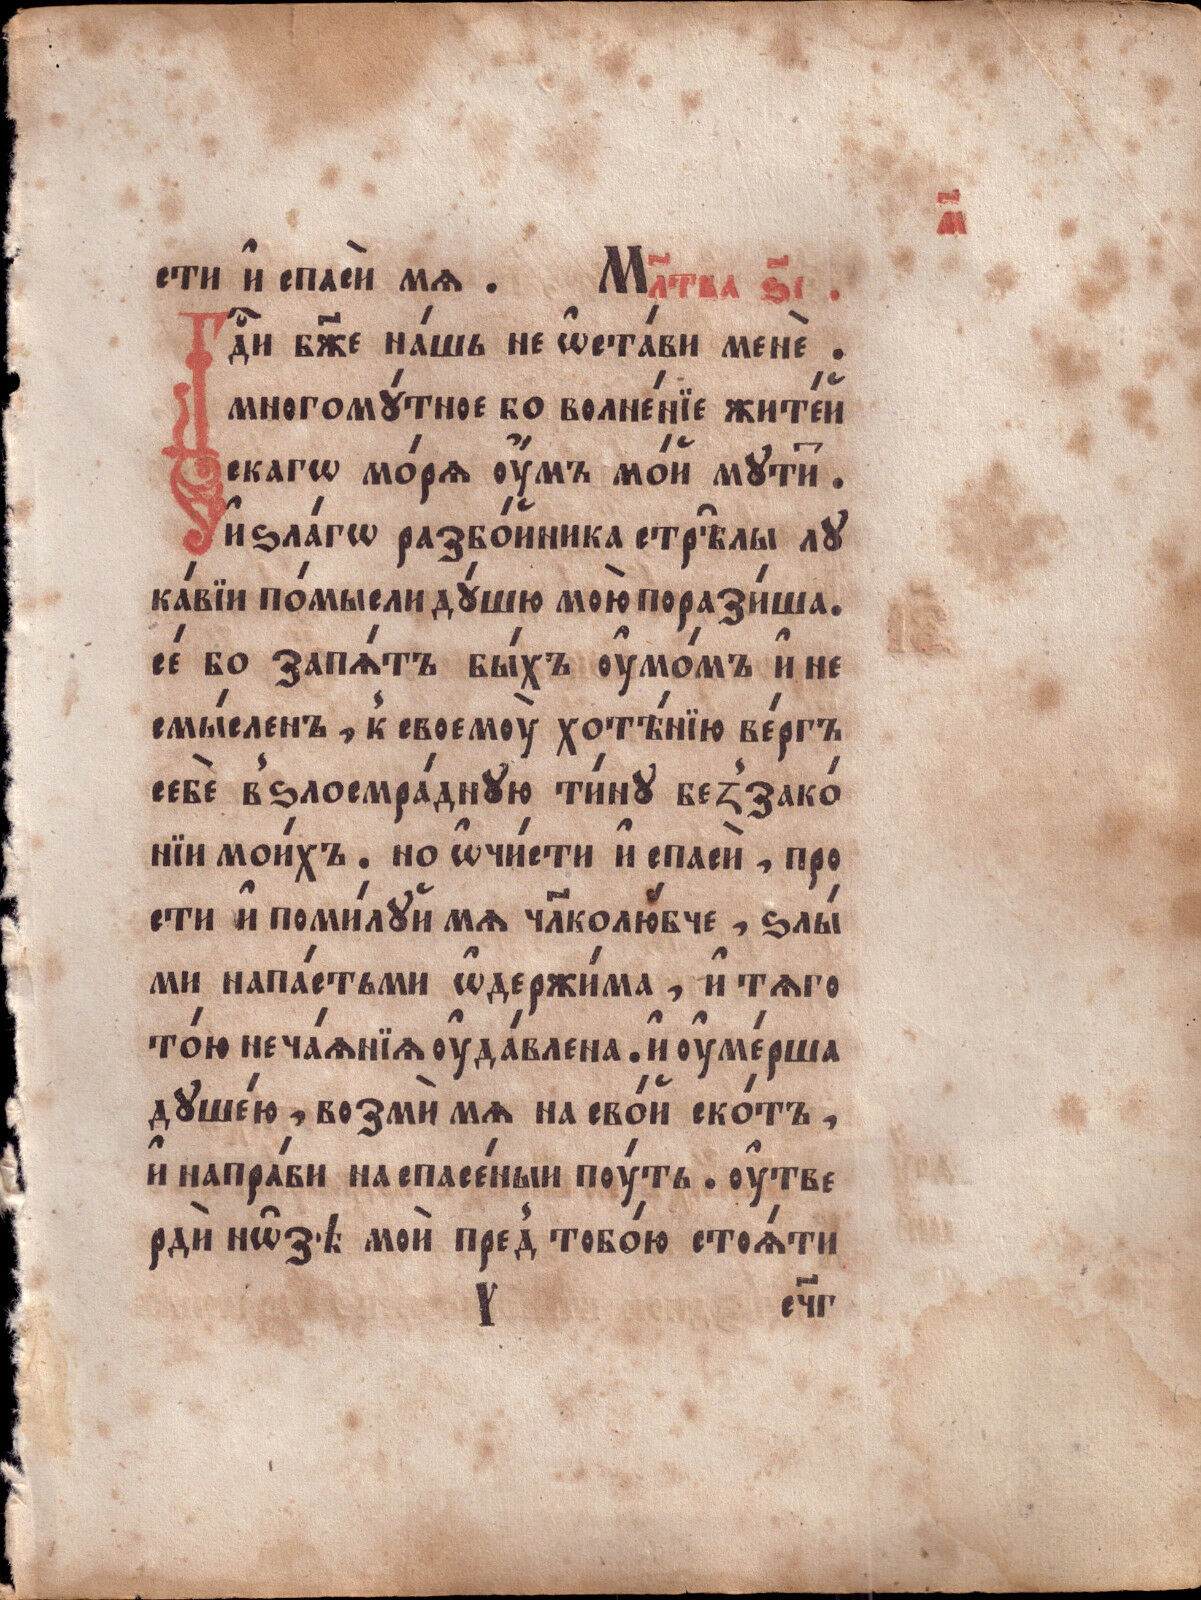 м҃
сти и҆ спасѝ мѧ . Мл҃тва ѕ҃і .
Гд҇и бж҃е на́шь не ѡ҆ста́ви менѐ .
многомꙋ́тное бо волне́нїе жите́й
скагѡ мо́рѧ оу҆́мъ мо́й мꙋти́ .
и҆ ѕла́гѡ разбо́йника стрѣ̑лы лꙋ
ка́вїи по́мысли дꙋ́шю мою̀ порази́ша .
се́ бо запѧ́тъ бы́хъ оу҆мо́мъ и҆ не
смы́сленъ , к̾ своемоу̀ хотѣ́нїю ве́ргъ
себѐ в̾ ѕлосмра́дную ти́нꙋ без̾зако́
нїи мои́хъ . но ѡ҆чи́сти и҆ спасѝ , про
сти и҆ поми́лꙋй мѧ чл҃колю́бче , ѕлы́
ми напа́стьми ѡ҆держи́ма , и҆ тѧго
то́ю неча́ѧнїѧ оу҆да́влена . и҆ оу҆ме́рша
дꙋше́ю , возмѝ мѧ на сво́й ско́тъ ,
и҆ напра́ви на спасе́ныи поу́ть . оу҆тве
рдѝ нѡ̑зѣ моѝ пред̾ тобо́ю стоѧ́ти
У сч҃г